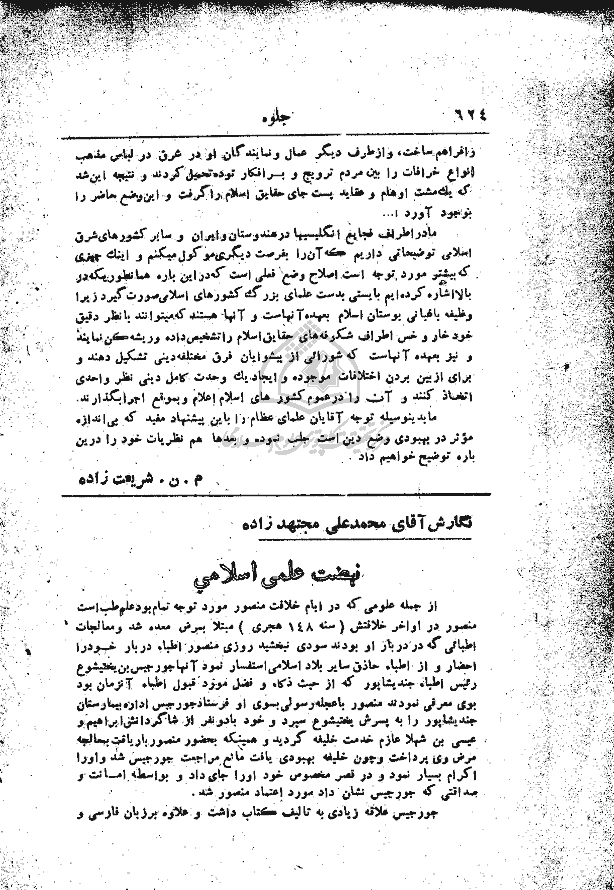 ٦٢٤
جلوه
را فراهم ساخت، و از طرف دیگر عمال و نمایندگان او در شرق در لباس مذهب
انواع خرافات را بین مردم ترویج و بر افکار توده تحمیل کردند و نتیجه این شد
که یك مشت اوهام و عقاید پست جای حقایق اسلام را گرفت و این وضع حاضر را
بوجود آورد ...
ما در اطراف فجایع انگلیسیها در هندوستان و ایران و سایر کشور های شرق
اسلامی توضیحاتی داریم که آن را بفرصت دیگری موکول میکنم و اینك چیزی
که بیشتر مورد توجه است اصلاح وضع فعلی است که در این باره همانطوریکه در
بالا اشاره کرده ایم بایستی بدست علمای بزرگ کشورهای اسلامی صورت گیرد زیرا
وظیفه باغبانی بوستان اسلام بعهده آنهاست و آنها هستند که میتوانند با نظر دقیق
خود خار و خس اطراف شکوفه های حقایق اسلام را تشخیص داده و ریشه کن نمایند
و نیز بعهده آنهاست که شورائی از پیشوایان فرق مختلفه دینی تشکیل دهند و
برای از بین بردن اختلافات موجوده و ایجاد یك وحدت کامل دینی نظر واحدی
اتخاذ کنند و آن را در عموم کشور های اسلام اعلام و بموقع اجرا بگذارند.
ما بدینوسیله توجه آقایان علمای عظام را باین پیشنهاد مفید که بی اندازه
مؤثر در بهبودی وضع دین است جلب نموده و بعدها هم نظریات خود را در این
باره توضیح خواهیم داد .
م . ن . شریعت زاده
نگارش آقای محمدعلی مجتهد زاده
نهضت علمی اسلامی
از جمله علومی که در ایام خلافت منصور مورد توجه تمام بود علم طب است
منصور در اواخر خلافتش ( سنه ۱۴۸ هجری ) مبتلا بمرض معده شد و معالجات
اطبائی که در دربار او بودند سودی نبخشید روزی منصور اطباء دربار خود را
احضار و از اطباء حاذق سایر بلاد اسلامی استفسار نمود آنها جورجیس بن بختیشوع
رئیس اطباء جندیشاپور که از حیث ذکاء و فضل مورد قبول اطباء آنزمان بود
بوی معرفی نمودند منصور با عجله رسولی بسوی او فرستاد جورجیس اداره بیمارستان
جندیشاپور را به پسرش بختیشوع سپرد و خود با دو نفر از شاگردانش ابراهیم و
عیسی بن شهلا عازم خدمت خلیفه گردید و همینکه بحضور منصور بار یافت بمعالجه
مرض وی پرداخت و چون خلیفه بهبودی یافت مانع مراجعت جورجیس شد و او را
اکرام بسیار نمود و در قصر مخصوص خود او را جای داد و بواسطه امانت و
صداقتی که جورجیس نشان داد مورد اعتماد منصور شد .
جورجیس علاقه زیادی به تالیف کتاب داشت و علاوه بر زبان فارسی و